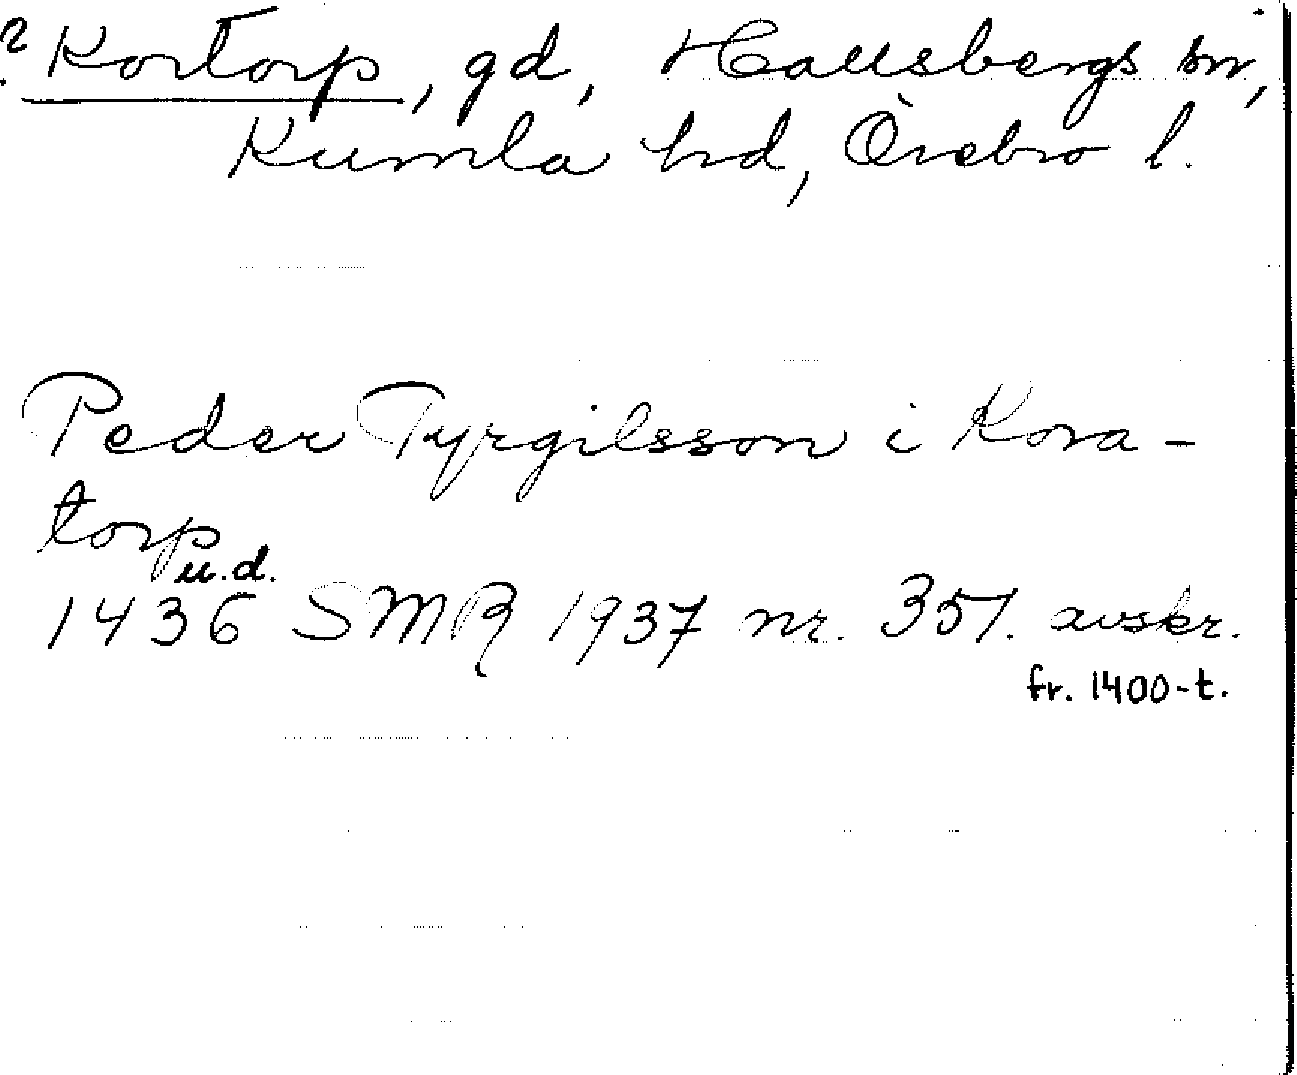 ? Kortorp, gd, Hallsbergs sn,
Kumla hd, Örebro l.
Peder Tyrgilsson i Kora-
torp
u.d.
1436 SMR 1937 nr. 351. avskr.
fr. 1400-t.